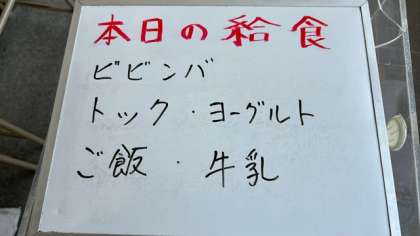 本日の給食
ビビンバ
トック・ヨーグルト
ご飯・牛乳